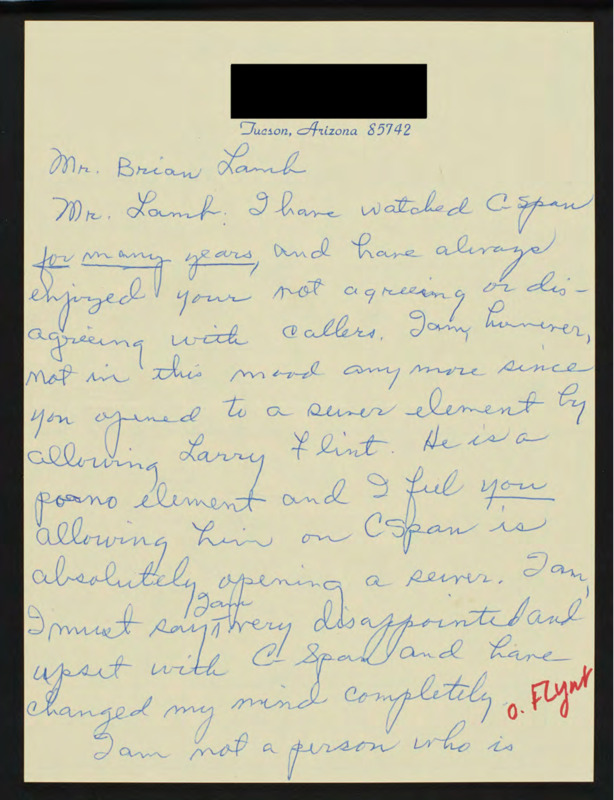 Tucson, Arizona 85742
Mr. Brian Lamb
Mr. Lamb: I have watched C-Span
for many years, and have always
enjoyed your not agreeing or dis-
agreeing with callers. I am, however,
not in this mood any more since
you opened to a sewer element by
allowing Larry Flint. He is a
porno element and I feel you
allowing him on CSpan is
absolutely opening a sewer. I am,
I am
I must say, very disappointed and
upset with C-Span and have
changed my mind completely.
O. Flynt
I am not a person who is